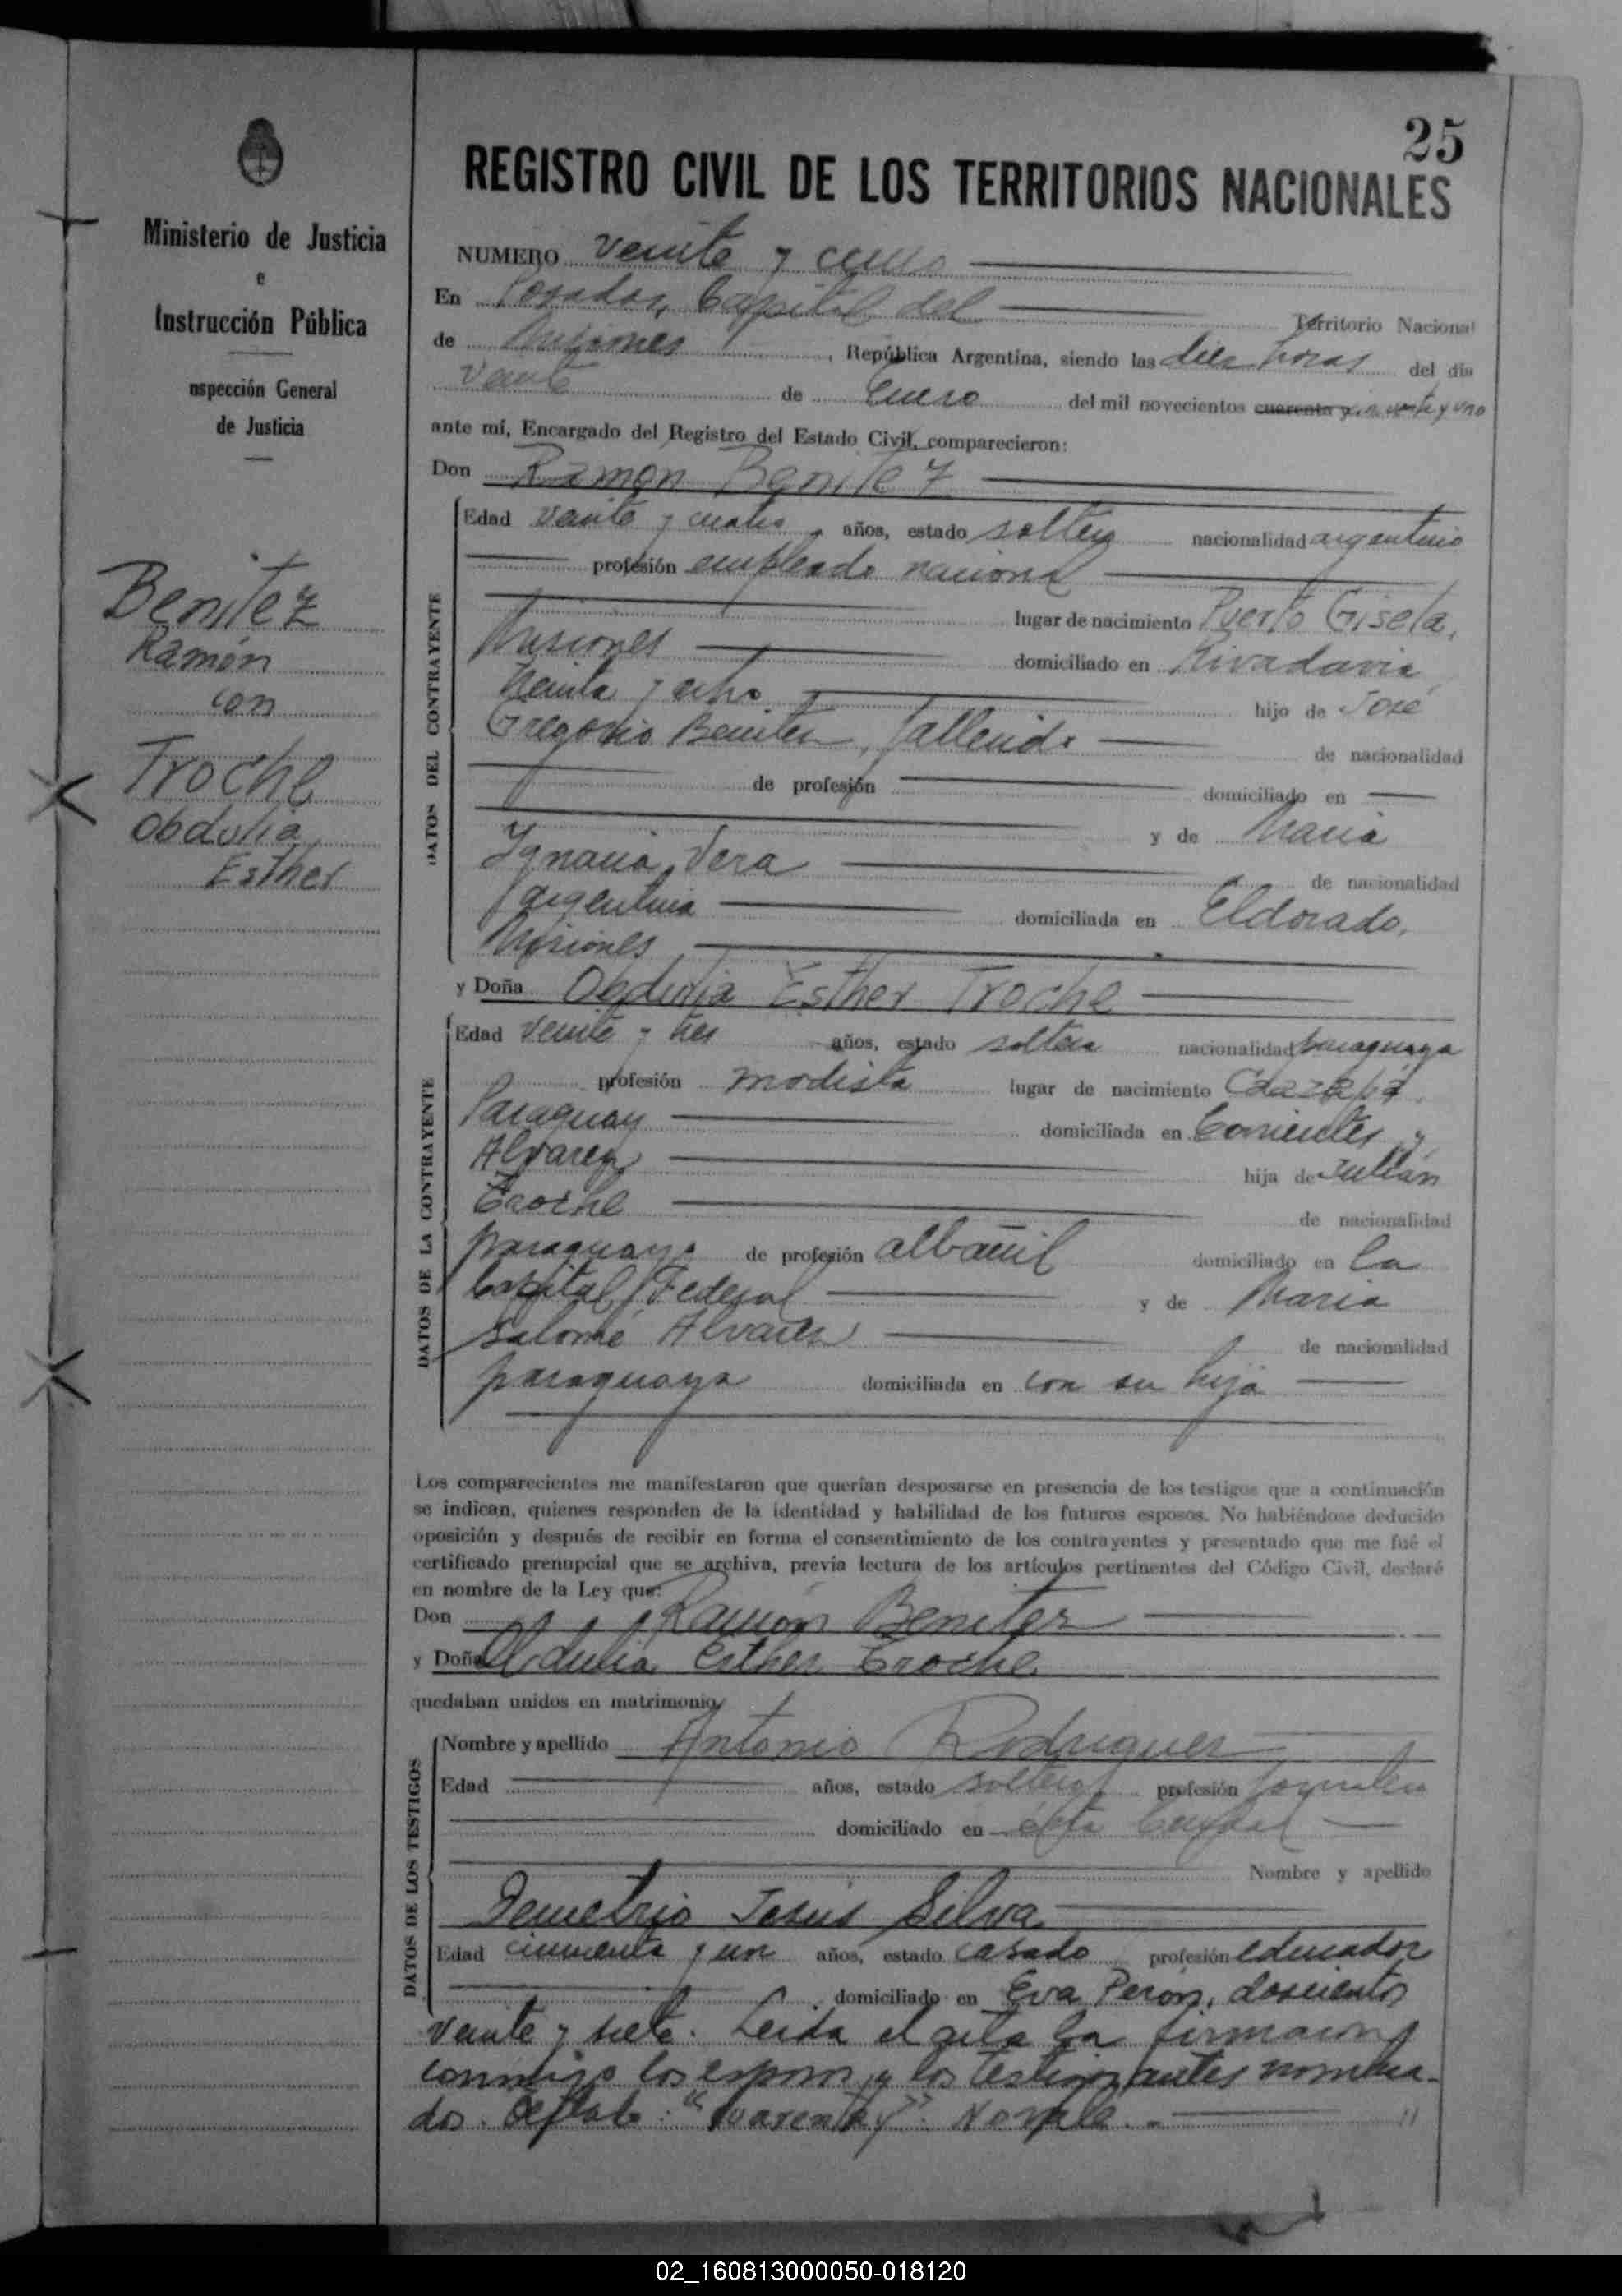 25
REGISTRO CIVIL DE LOS TERRITORIOS NACIONALES
Ministerio de Justicia
e
Instrucción Pública
nspección General
de Justicia
Benitez
Ramón
con
Troche
Obdulia
Esther
NUMERO veinte y cinco
En Posadas, Capital del Territorio Nacional
de Misiones, República Argentina, siendo las diez horas del día
veinte de Enero del mil novecientos cuarenta y cincuenta y uno
ante mí, Encargado del Registro del Estado Civil, comparecieron:
Don Ramón Benitez
DATOS DEL CONTRAYENTE
Edad veinte y cuatro años, estado soltero nacionalidad argentino
profesión empleado nacional
lugar de nacimiento Puerto Gisela,
Misiones domiciliado en Rivadavia
treinta y ocho hijo de José
Gregorio Benitez, fallecido de nacionalidad
de profesión domiciliado en
y de Maria
Ignacia Vera de nacionalidad
argentina domiciliada en Eldorado,
Misiones
y Doña Obdulia Esther Troche
DATOS DE LA CONTRAYENTE
Edad veinte y tres años, estado soltera nacionalidad paraguaya
profesión modista lugar de nacimiento Caazapá
Paraguay domiciliada en Corrientes y
Alvarez hija de Julián
Troche de nacionalidad
paraguaya de profesión albañil domiciliado en la
Capital Federal y de Maria
Salomé Alvarez de nacionalidad
paraguaya domiciliada en con su hija
Los comparecientes me manifestaron que querían desposarse en presencia de los testigos que a continuación
se indican, quienes responden de la identidad y habilidad de los futuros esposos. No habiéndose deducido
oposición y después de recibir en forma el consentimiento de los contrayentes y presentado que me fué el
certificado prenupcial que se archiva, previa lectura de los artículos pertinentes del Código Civil, declaré
en nombre de la Ley que:
Don Ramón Benitez
y Doña Obdulia Esther Troche
quedaban unidos en matrimonio
DATOS DE LOS TESTIGOS
Nombre y apellido Antonio Rodriguez
Edad años, estado soltero profesión jornalero
domiciliado en ésta Capital
Nombre y apellido
Demetrio Jesús Silva
Edad cincuenta y un años, estado casado profesión educador
domiciliado en Eva Perón, doscientos
veinte y siete. Leida el acta la firmaron
conmigo los esposos y los testigos antes nombra-
dos. Testado: "cuarenta y": No vale.-
02_160813000050-018120